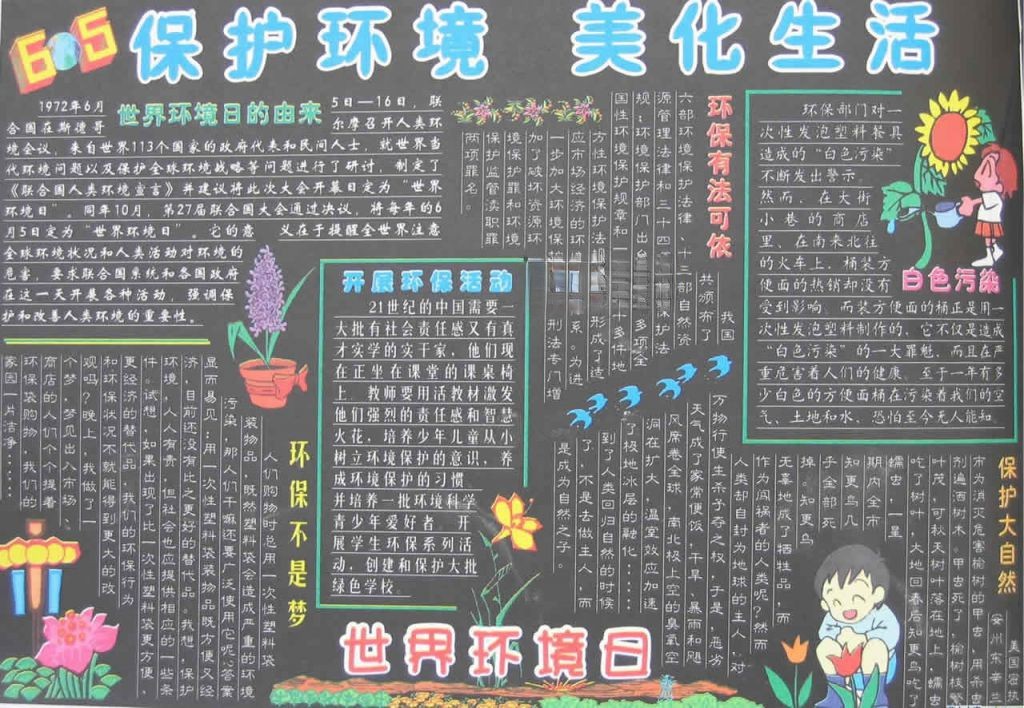 6·5
保护环境 美化生活
世界环境日的由来
1972年6月
5日—16日，联
合国在斯德哥
尔摩召开人类环
境会议，来自世界113个国家的政府代表和民间人士，就世界当
代环境问题以及保护全球环境战略等问题进行了研讨，制定了
《联合国人类环境宣言》并建议将此次大会开幕日定为“世界
环境日”。同年10月，第27届联合国大会通过决议，将每年的6
月5日定为“世界环境日”。它的意 义在于提醒全世界注意
全球环境状况和人类活动对环境的
危害，要求联合国系统和各国政府
在这一天开展各种活动，强调保
护和改善人类环境的重要性。
环保有法可依
我国
共颁布了
六部环境保护法律、十三部自然资
源管理法律和三十四
保护法
规；环境保护部门出
多项全
国性环境保护规章和一
十多件地
方性环境保护法
形成了适
应市场经济的环
系。为进
一步加大环境保
刑法专门增
加了破坏资源环
境保护罪和环境
保护监管渎职罪
两项罪名。
白色污染
环保部门对一
次性发泡塑料餐具
造成的“白色污染”
不断发出警示。
然而，在大街
小巷的商店
里、在南来北往
的火车上，桶装方
便面的热销却没有
受到影响。而装方便面的桶正是用一
次性发泡塑料制作的，它不仅是造成
“白色污染”的一大罪魁，而且在严
重危害着人们的健康。至于一年有多
少白色的方便面桶在污染着我们的空
气、土地和水，恐怕至今无人能知
开展环保活动
21世纪的中国需要一
大批有社会责任感又有真
才实学的实干家，他们现
在正坐在课堂的课桌椅
上。教师要用活教材激发
他们强烈的责任感和智慧
火花，培养少年儿童从小
树立环境保护的意识，养
成环境保护的习惯
并培养一批环境科学
青少年爱好者 开
展学生环保系列活
动，创建和保护大批
绿色学校。
环保不是梦
人们购物时总用一次性塑料袋
装物品，既然塑料袋会造成严重的环境
污染，那人们干嘛还要广泛使用它呢?答案
显而易见：用一次性塑料袋装物品既方便又经
济，目前还没有比之更好的替代品。我想，保护
环境，人人有责，但社会也应提供相应的一些条
件。试想，如果出现了比一次性塑料袋更方便，
更经济的替代品，我们的环保行为
和环保状况不就能得到更大的改
观吗?晚上，我做了一
个梦，梦见出入市场、
商店的人们个个提着
环保袋购物，我们的
家园一片洁净……
保护大自然
美国密执
安州东辛兰
市为消灭危害榆树的甲虫，用杀虫
剂遍洒树木。甲虫死了，榆树枝繁
叶茂，可秋天树叶落在地上，蠕虫
吃了树叶，大地回春后知更鸟吃了
蠕虫，一星
期内全市
知更鸟几
乎全部死
掉。知更鸟
无辜地成了牺牲品，而
作为闯祸者的人类呢?然而
人类却自封为地球的主人，对
万物行使生杀予夺之权，于是，恶劣
天气成了家常便饭，干旱、暴雨和飓
风席卷全球，南北极上空的臭氧空
洞在扩大，温室效应加速
了极地冰层的融化……
到了人类回归自然的时候
了，不是去做主人，而
是成为自然之子。
世界环境日